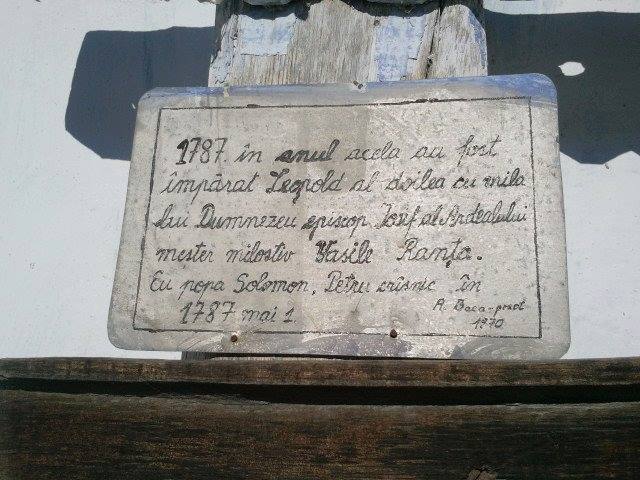 1787 în anul acela au fost
împărat Leopold al doilea cu mila
lui Dumnezeu episcop Iosif al Ardealului
mester milostiv Vasile Ranța.
Eu popa Solomon, Petru crîsnic în
1787 mai 1
A. Baca-preot
1970